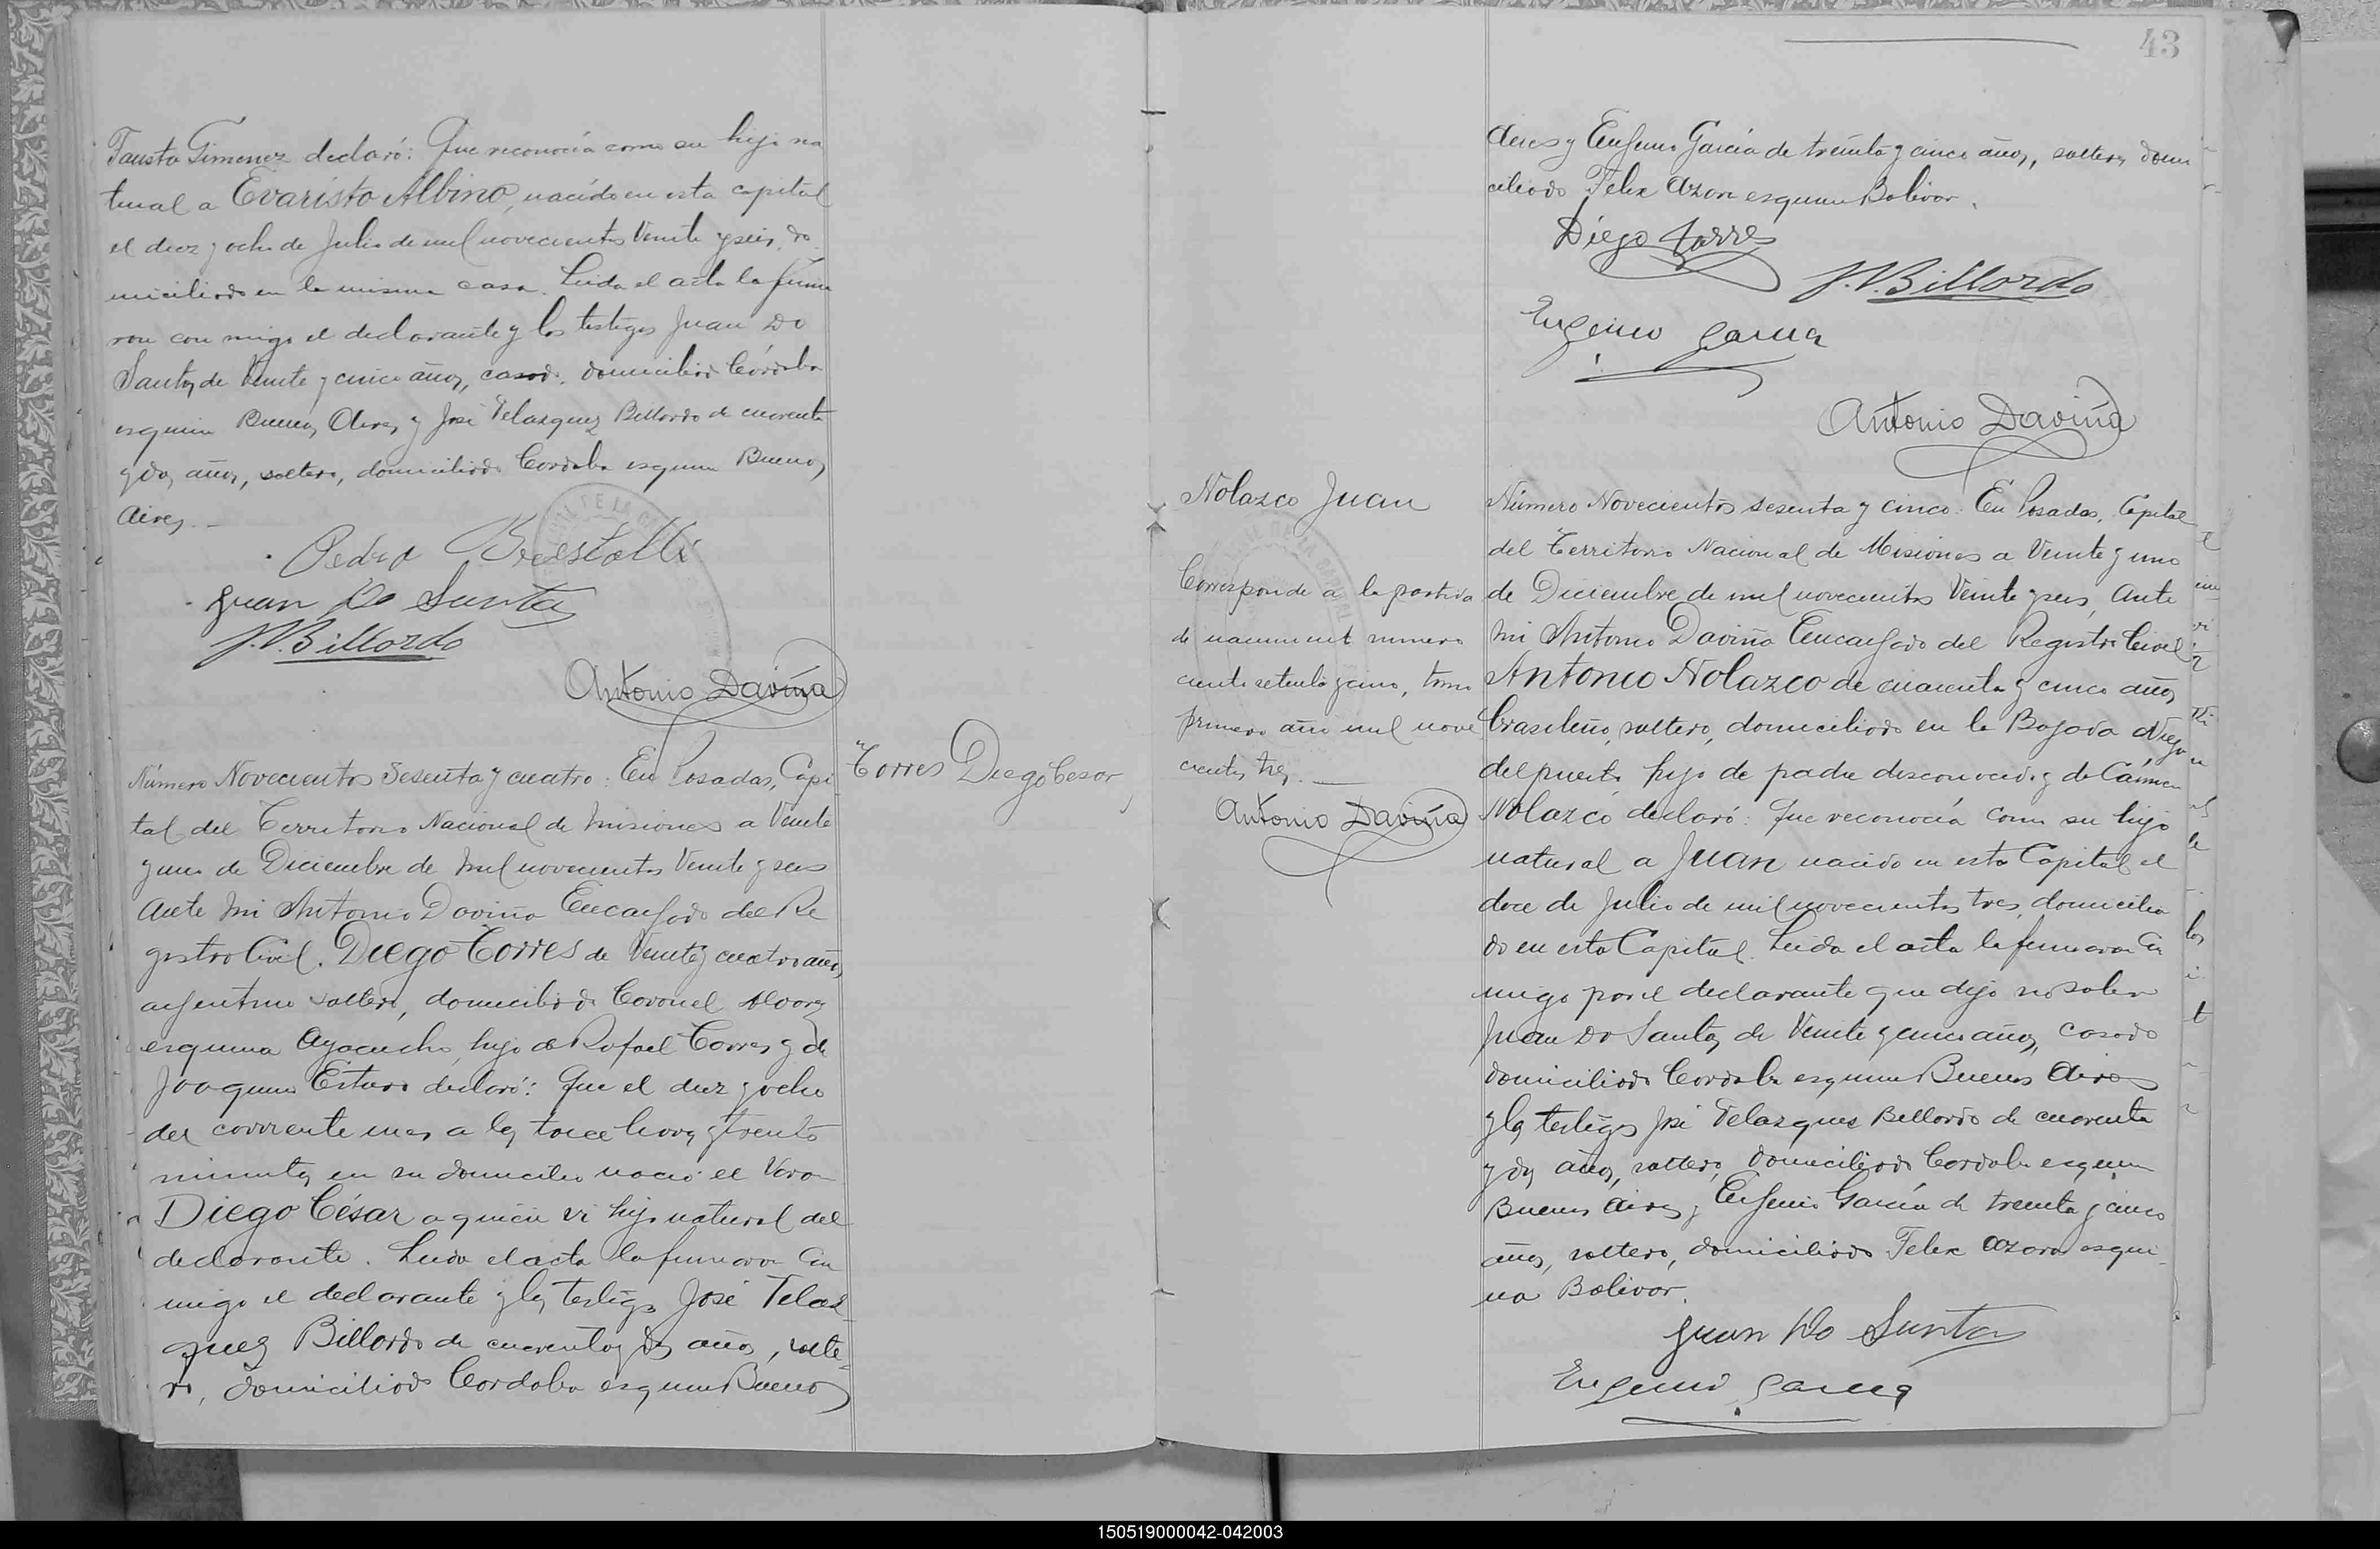 Fausta Gimenez declaró: Que reconocía como su hijo na
tural a Evaristo Albino, nacido en esta capital
el diez y ocho de Julio de mil novecientos Veinte y seis, do
miciliado en la misma casa. Leida el acta la firma
ron con migo el declarante y los testigos Juan Do
Santos de Veinte y cinco años, casado, domiciliado Córdoba
esquina Buenos Aires y José Velazquez Billordo de cuarenta
y dos años, soltero, domiciliado Cordoba esquina Buenos
Aires.
Pedro
Juan Do Santos
J.V. Billordo
Antonio Daviña
Número Novecientos Sesenta y cuatro: En Posadas, Capi
tal del Territorio Nacional de Misiones a Veinte
y uno de Diciembre de mil novecientos Veinte y seis
Ante mi Antonio Daviña Encargado del Re
gistro Civil. Diego Torres de Veinte y cuatro años,
argentino soltero, domiciliado Coronel Alvarez
esquina Ayacucho, hijo de Rafael Torres y de
Joaquina declaró: Que el diez y ocho
del corriente mes a las horas y treinta
minutos en su domicilio nació el Varon
Diego César a quien vi hijo natural del
declarante. Leida el acta la firmaron con
migo el declarante y los testigos José Velaz
quez Billordo de cuarenta y dos años, solte-
ro, domiciliado Cordoba esquina Buenos
Torres Diego Cesar
43
Aires y Eugenio García de treinta y cinco años, soltero, domi
ciliado Felix Azara esquina Bolivar.
Diego Torres
J.V. Billordo
Eugenio Garcia
Antonio Daviña
Nolazco Juan
Corresponde a la partida
de nacimiento numero
ciento setenta y cinco, tomo
primero año mil nove
cientos tres.
Antonio Daviña
Número Novecientos sesenta y cinco: En Posadas, Capital
del Territorio Nacional de Misiones a Veinte y uno
de Diciembre de mil novecientos Veinte y seis, Ante
mi Antonio Daviña Encargado del Registro Civil
Antonio Nolazco de cuarenta y cinco años
brasileño, soltero, domiciliado en la Bajada Vieja
del puerto, hijo de padre desconocido y de Cármen
Nolazco declaró: Que reconocía como su hijo
natural a Juan nacido en esta Capital el
doce de Julio de mil novecientos tres, domicilia
do en esta Capital. Leida el acta la firmaron con
migo por el declarante que dijo no saber
Juan Do Santos de Veinte y cinco años, casado
domiciliado Cordoba esquina Buenos Aires
y los testigos José Velazques Billordo de cuarenta
y dos años, soltero, domiciliado Cordoba esquina
Buenos Aires y Eugenio García de treinta y cinco
años, soltero, domiciliado Felix Azara esqui
na Bolivar.
Juan Do Santos
Eugenio Garcia
150519000042-042003